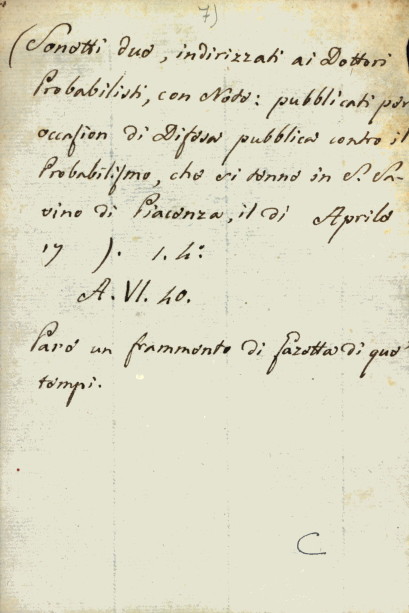 7)
(Sonetti due, indirizzati ai Dottori
Probabilisti, con Note: pubblicati per
occasion di Difesa pubblica contro il
Probabilismo, che si tenne in S. Sa-
vino di Piacenza, il di Aprile
17 ). 1. 4°:
A. VI. 40.
Pare un frammento di gazetta di que'
tempi.
C